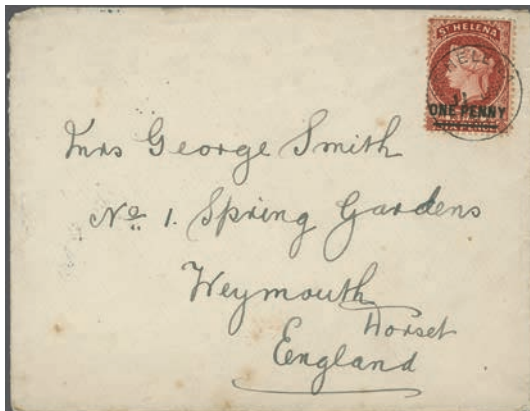 ST HELENA
HELENA
ONE PENNY
Mrs George Smith
No 1. Spring Gardens
Weymouth
Dorset
England